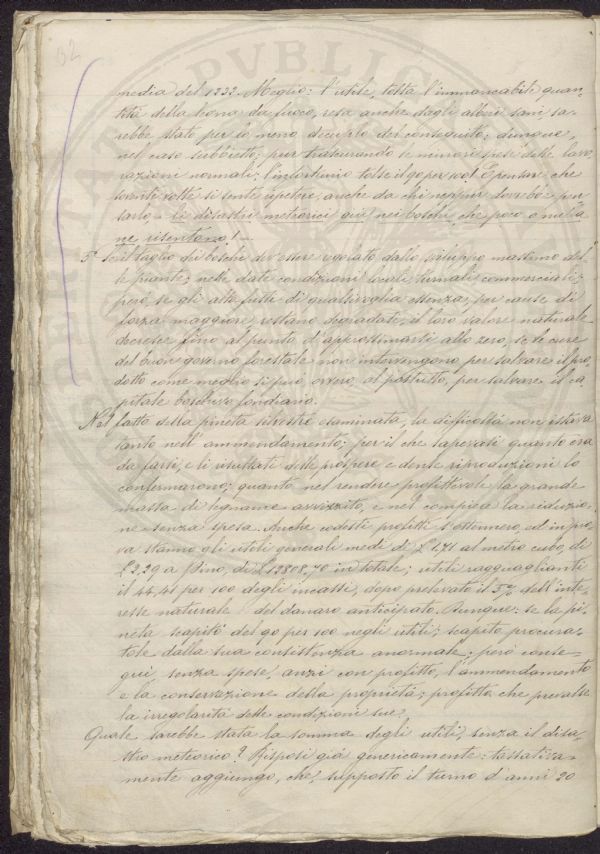 62
media del 1233. Meglio: l'utile, tolta l'immancabile quan-
tità della legna da fuoco, resa anche dagli alberi sani, sa-
rebbe stato per lo meno decuplo del conseguito; dunque,
nel caso subbietto; pur trascurando le minori spese delle lavo-
razioni normali; l'infortunio tolse il 90 per 100! E pensare che
sovente volte si sente ripetere, anche da chi neppur dovrebbe pen-
sarlo, - li disastri meteorici qui nei boschi, che poco o nulla
ne risentono! -
5° Se il taglio dei boschi dev'essere regolato dallo sviluppo massimo del-
le piante; nelle date condizioni locali, turnali, commerciali;
però se gli alto fusti di qualsivoglia essenza, per cause di
forza maggiore restano degradate, il loro valore naturale
decresce fino al punto d'approssimarsi allo zero, se le cure
del buon governo forestale non intervengono per salvare il pro-
dotto come meglio si può, ovvero, al postutto, per salvare il ca-
pitale boschivo fondiario.
Nel fatto della pineta silvestre esaminata, la difficoltà non istava
tanto nell'ammendamento; per il che sapevasi quanto era
da farsi, e li risultati delle prospere e dense riproduzioni lo
confermarono; quanto nel rendere profittevole la grande
massa di legname avvizzito, e nel compiere la riduzio-
ne senza spesa. Anche codesti profitti s'ottennero, ed in pro-
va stanno gli utili generali medi di £ 1.71 al metro cubo, di
£ 2.29 a Pino, di £ 12808,70 in totale; utili ragguaglianti
il 44,41 per 100 degli incassi, dopo prelevato il 5% dell'inte-
resse naturale del danaro anticipato. Dunque: se la pi-
neta scapitò del 90 per 100 negli utili; scapito procura-
tole dalla sua consistenza anormale; però conse-
guì, senza spese, anzi con profitto, l'ammendamento
e la conservazione della proprietà; profitto che prevalse
la irregolarità delle condizioni sue.
Quale sarebbe stata la somma degli utili, senza il disa-
stro meteorico? Risposi già genericamente: tassativa-
mente aggiungo, che, supposto il turno d'anni 20